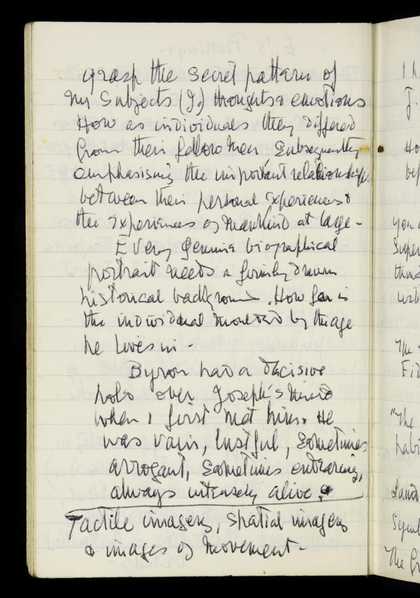 grasp the secret pattern of
his subjects (J.) thoughts & emotions
How as individuals they differed
from their fellow men. Subsequently
emphasising the important relationships
between their personal experiences &
the experiences of mankind at large -
Every genuine biographical
portrait needs a firmly drawn
historical background. How far is
the individual moulded by the age
he lives in -
Byron had a decisive
hold over Joseph's mind
when I first met him. He
was vain, lustful, sometimes
arrogant, sometimes endearing,
always intensely alive.
Tactile imagery, spatial imagery
& images of movement -